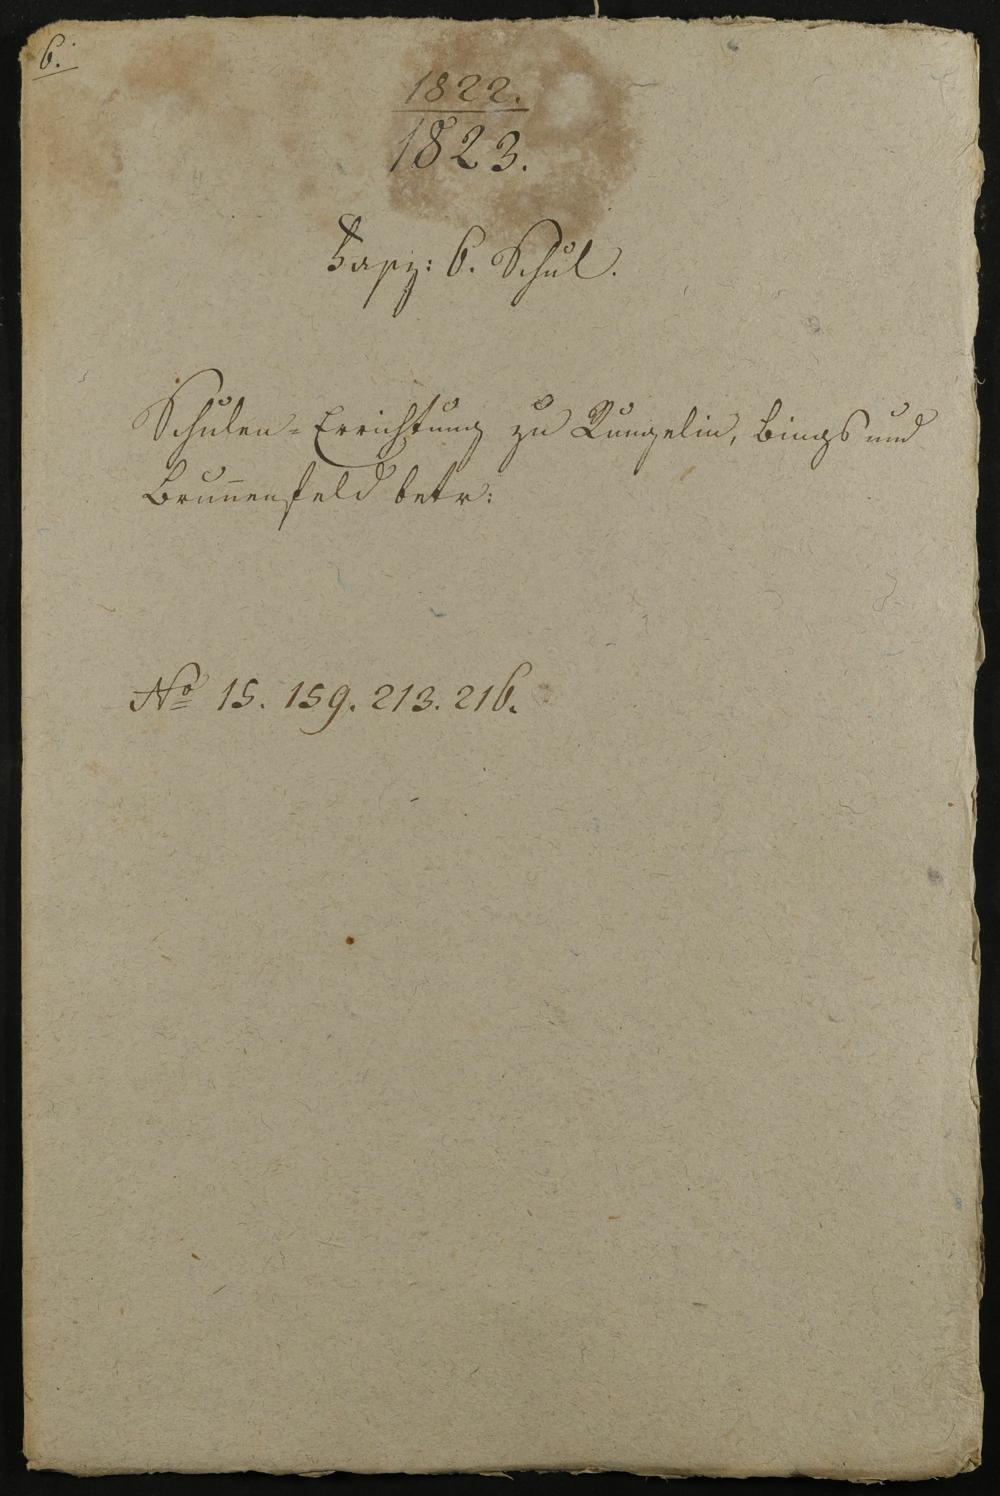 6.
1822.
1823.
Fasz: 6. Schul.
Schulen-Errichtung zu Rungelin, Bings und
Brunnenfeld betr:
No 15. 159. 213. 216.